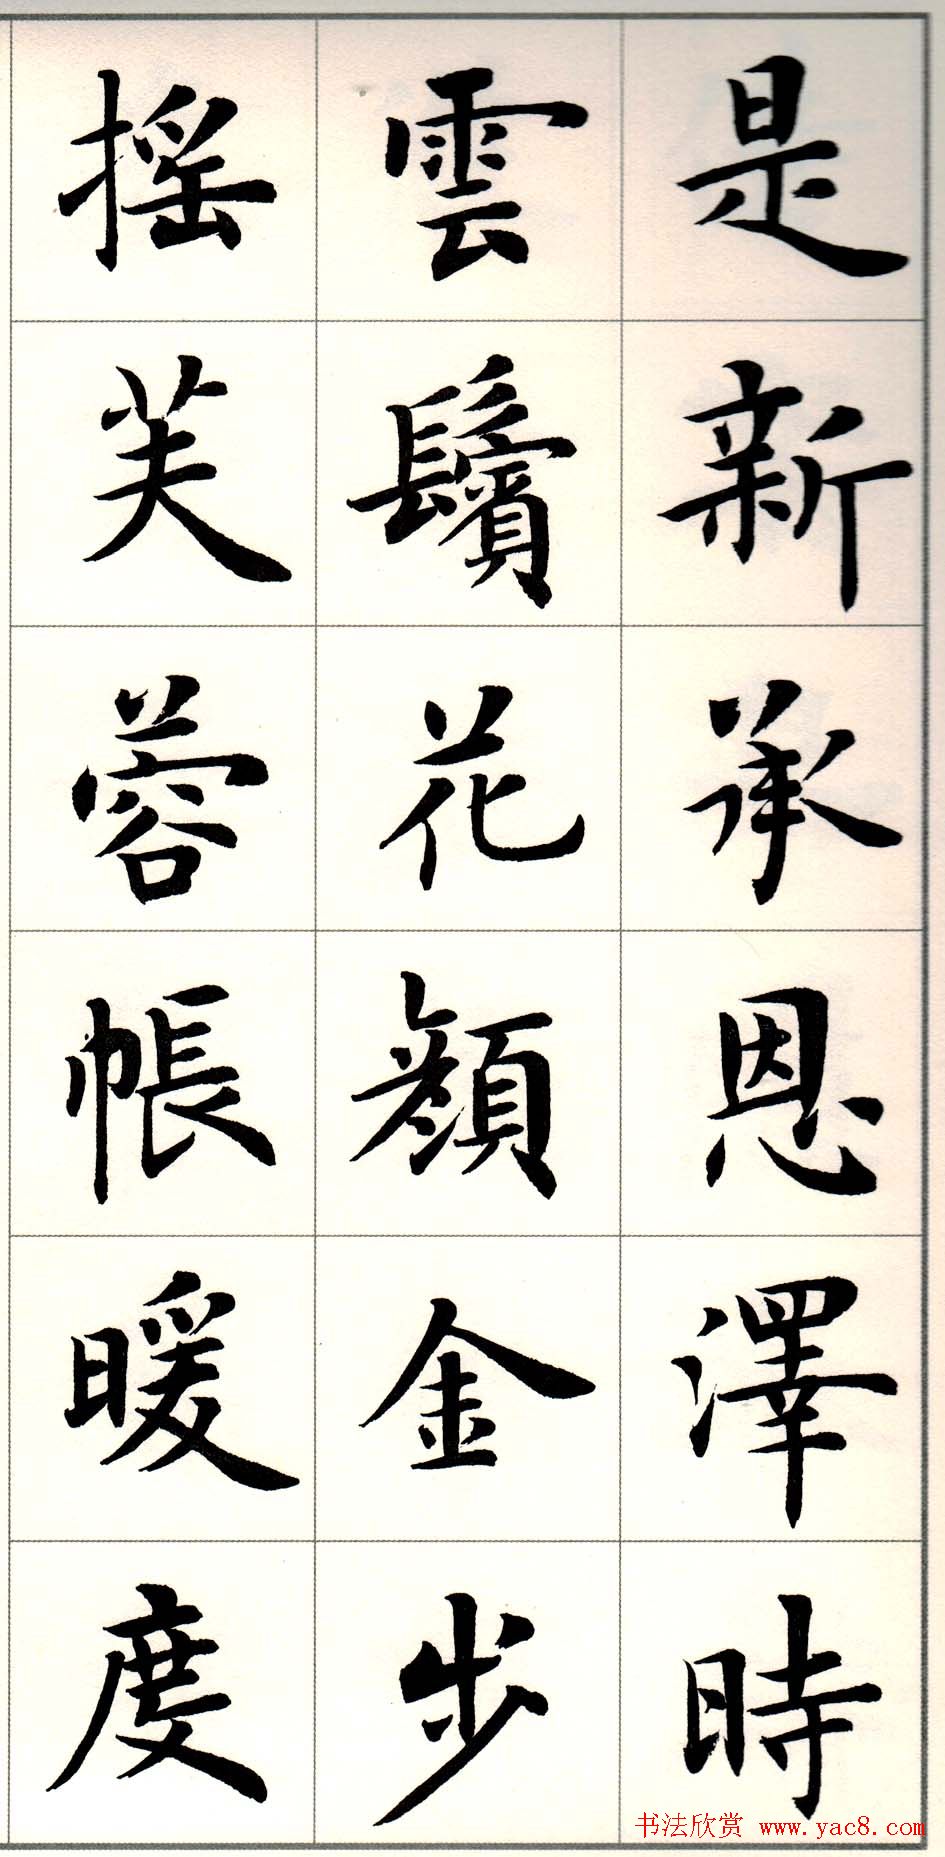 是新承恩澤時
雲鬢花顔金步
揺芙蓉帳暖度
书法欣赏 www.yac8.com